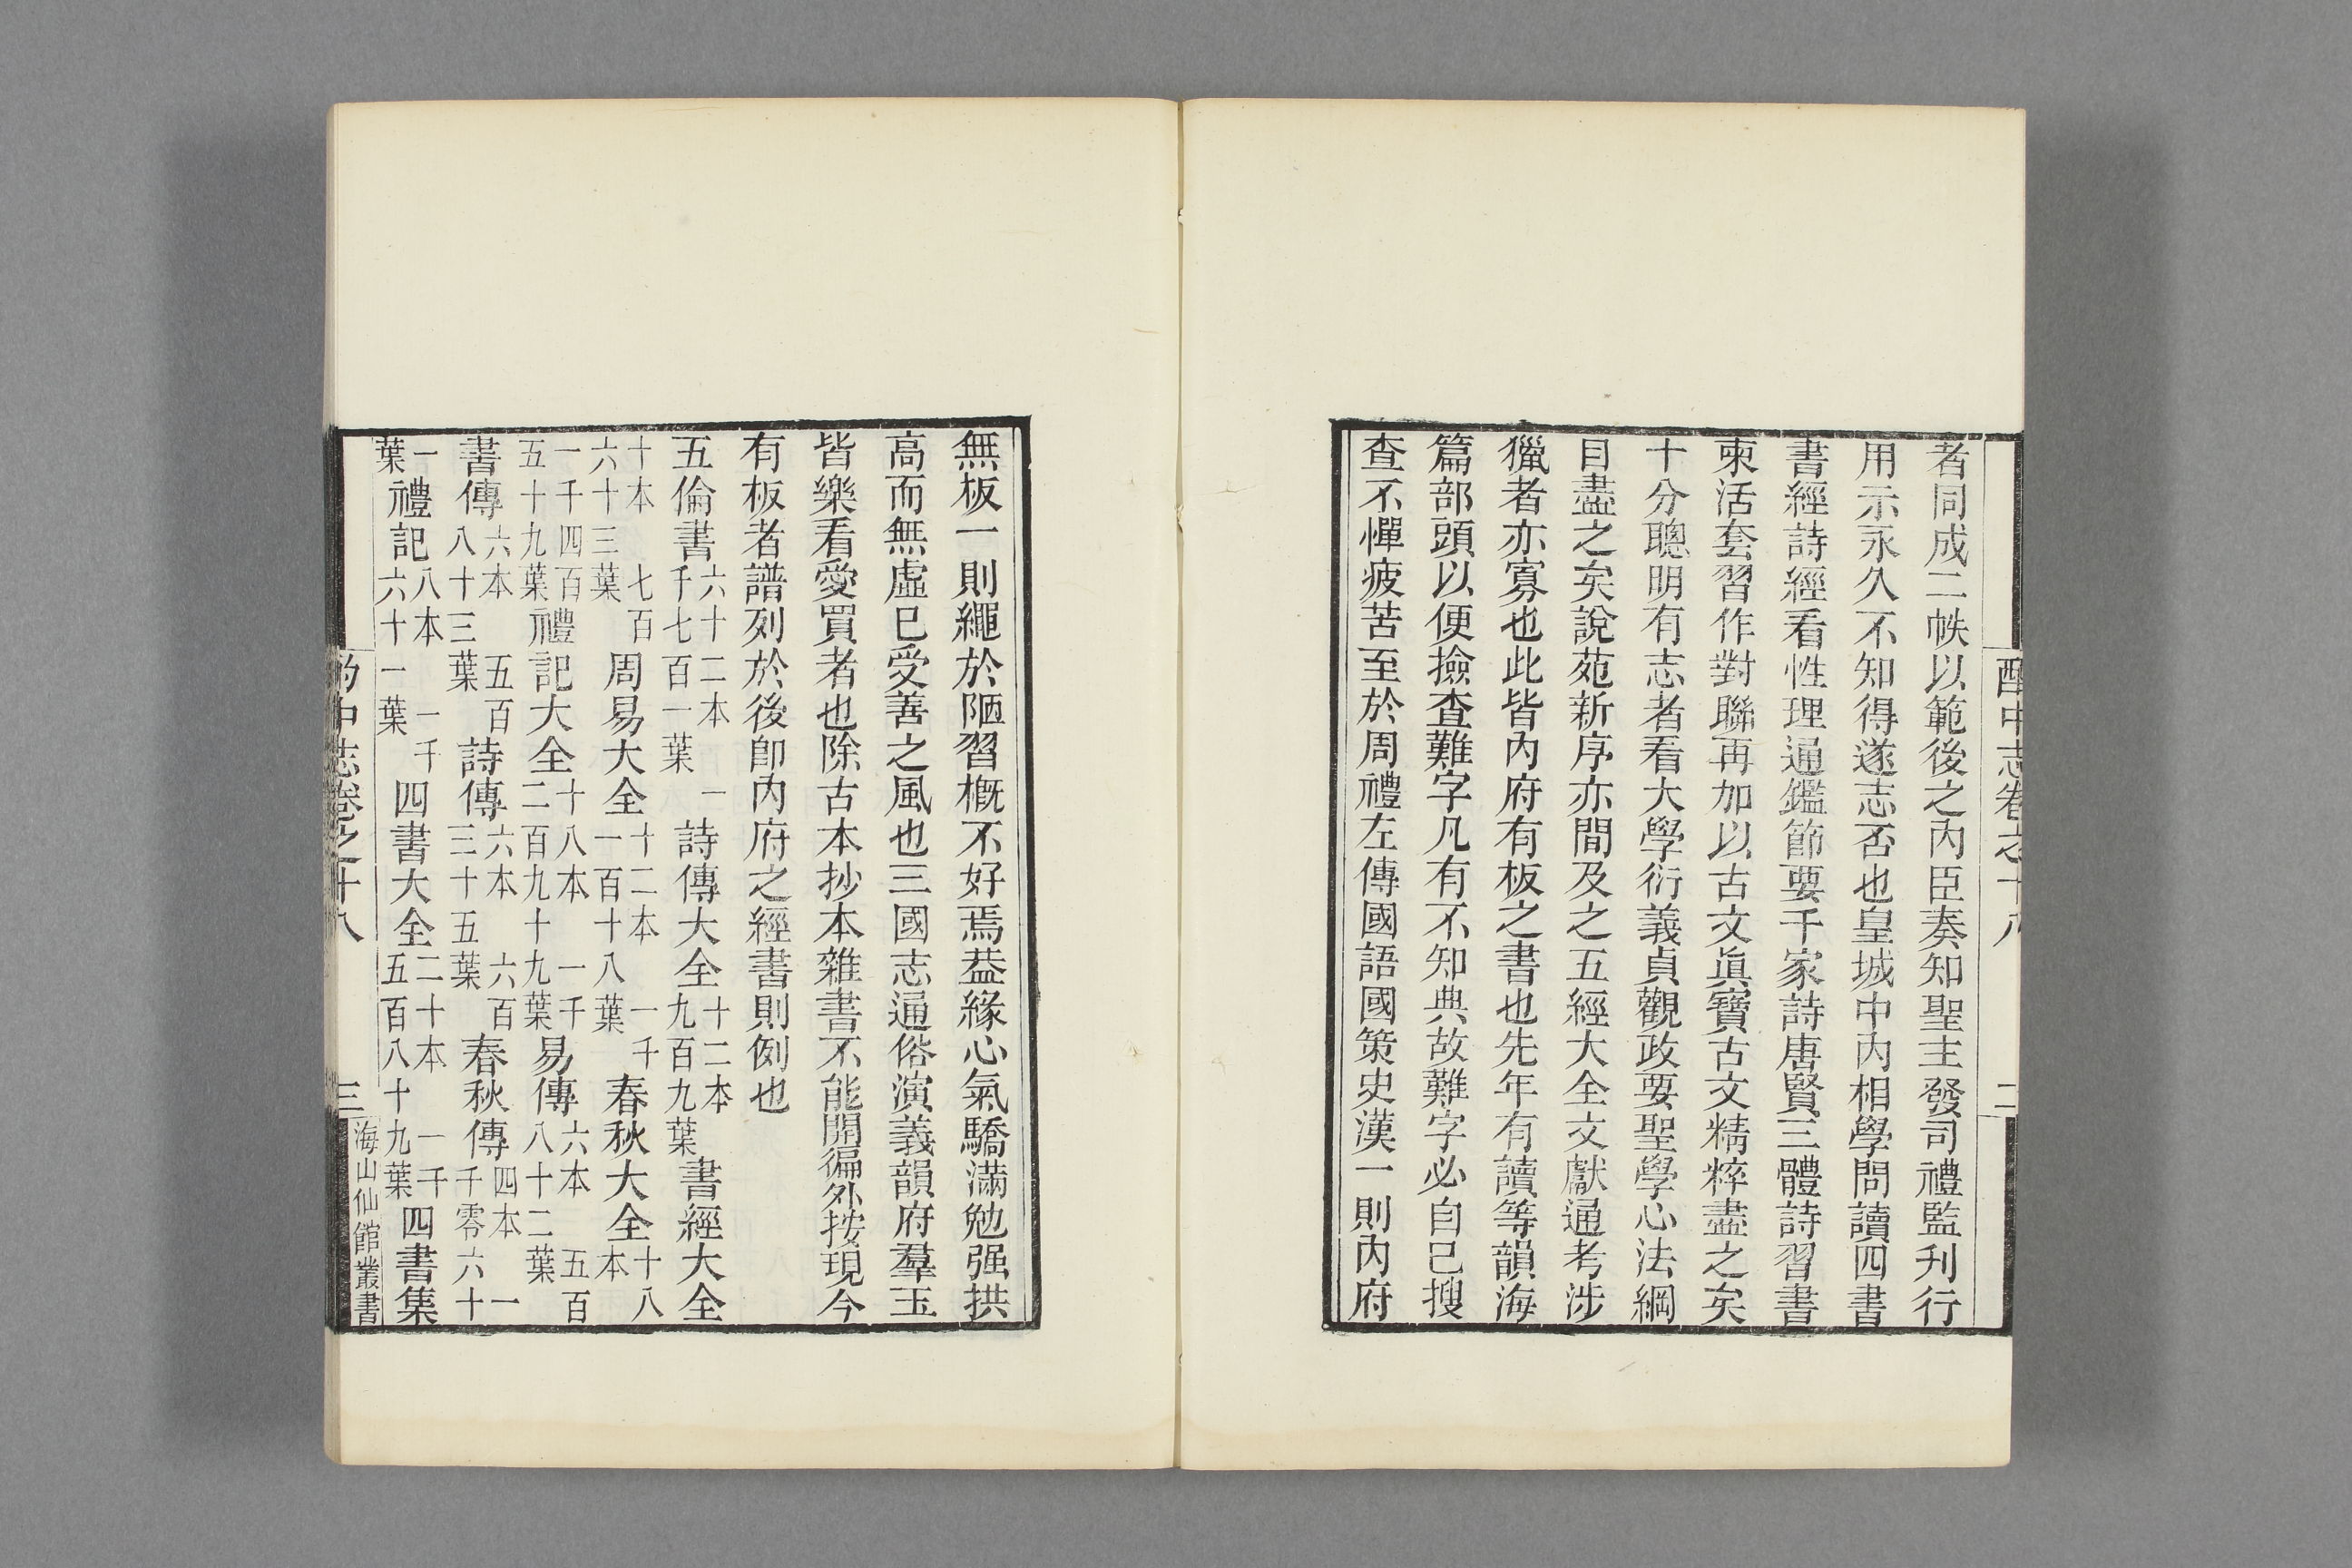 酌中志卷之十八　二
者同成二帙以範後之內臣奏知聖主發司禮監刊行
用示永久不知得遂志否也皇城中內相學問讀四書
書經詩經看性理通鑑節要千家詩唐賢三體詩習書
柬活套習作對聯再加以古文眞寶古文精粹盡之矣
十分聰明有志者看大學衍義貞觀政要聖學心法綱
目盡之矣說苑新序亦間及之五經大全文獻通考涉
獵者亦寡也此皆內府有板之書也先年有讀等韻海
篇部頭以便撿查難字凡有不知典故難字必自己搜
查不憚疲苦至於周禮左傳國語國策史漢一則內府
無板一則繩於陋習槪不好焉葢緣心氣驕滿勉强拱
高而無虛已受善之風也三國志通俗演義韻府羣玉
皆樂看愛買者也除古本抄本雜書不能開徧外按現今
有板者譜列於後卽內府之經書則例也
五倫書六十二本一千七百一葉詩傳大全十二本九百九葉書經大全
十本七百六十三葉周易大全十二本一千一百十八葉春秋大全十八本
一千四百五十九葉禮記大全十八本一千二百九十九葉易傳六本五百八十二葉
書傳六本五百八十三葉詩傳六本六百三十五葉春秋傳四本一千零六十
一葉禮記八本一千六十一葉四書大全二十本一千五百八十九葉四書集
酌中志卷之十八　三　海山仙館叢書